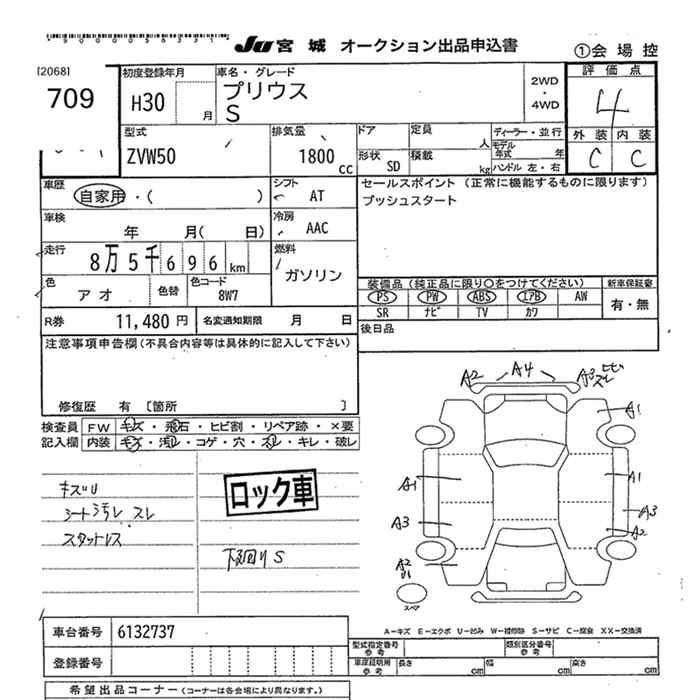 JU 宮城 オークション出品申込書
①会場控
[2068]
709
初度登録年月
H30
月
車名・グレード
プリウス
S
2WD
・
4WD
評価点
4
外装 内装
C C
型式
ZVW50
排気量
1800 cc
ドア
形状 SD
定員 人
積載 kg
ディーラー・並行
モデル年式 年
ハンドル 左・右
車歴
自家用・( )
シフト
AT
セールスポイント (正常に機能するものに限ります)
プッシュスタート
車検
年 月( 日)
冷房
AAC
走行
8万5千696km
燃料
ガソリン
色
アオ
色替
色コード
8W7
装備品(純正品に限り○をつけてください)
PS PW ABS エアB AW
SR ナビ TV カワ
新車保証書
有・無
R券 11,480円
名変通知期限 月 日
後日品
注意事項申告欄(不具合内容等は具体的に記入して下さい)
修復歴 有 〔箇所 〕
検査員 記入欄
FW キズ・飛石・ヒビ割・リペア跡・×要
内装 キズ・汚レ・コゲ・穴・スレ・キレ・破レ
キズU
シート汚レ スレ
スタットレス
ロック車
下廻りS
A2 A4 A3 ヒビ
スレ
A1
A1 A1
A3 A3
A2
A2
U1
スペア
A-キズ E-エクボ U-凹み W-補修跡 S-サビ C-腐食 XX-交換済
車台番号 6132737
登録番号
型式指定番号 参考
類別区分番号 参考
車庫証明用 参考
長さ cm 幅 cm 高さ cm
希望出品コーナー(コーナーは各会場により異なります。)